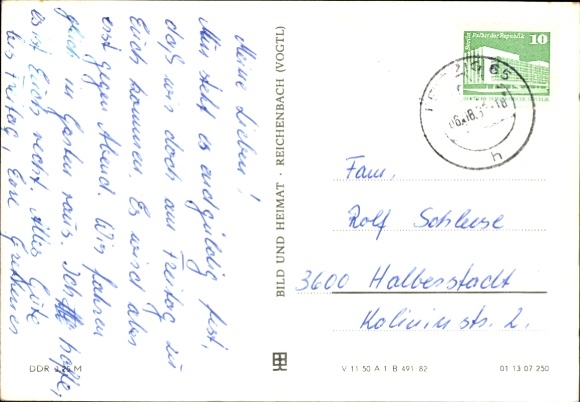 Meine Lieben!
Nun steht es endgültig fest,
daß wir doch am Freitag zu
Euch kommen. Es wird aber
erst gegen Abend. Wir fahren
gleich in Garten raus. Ich hoffe,
es ist Euch recht. Alles Gute
bis Freitag, Eure
DDR M
BILD UND HEIMAT · REICHENBACH (VOGTL)
Berlin Palast der Republik
10
65
h
Fam.
Rolf Schluse
3600 Halberstadt
str. 2.
V 11 50 A 1 B 491/82
01 13 07 250